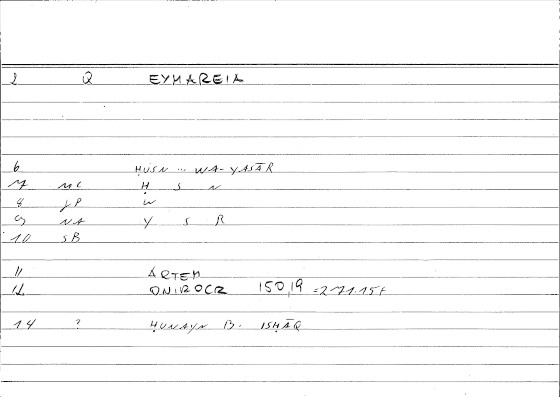 2 Q EYMAREIA
6 ḤUSN ... WA-YASĀR
7 MC Ḥ S N
8 JP W
9 NA Y S R
10 SB
11 ARTEM
12 ONIROCR 150,19 = 271.15f
14 ? ḤUNAYN B. ISḤĀQ